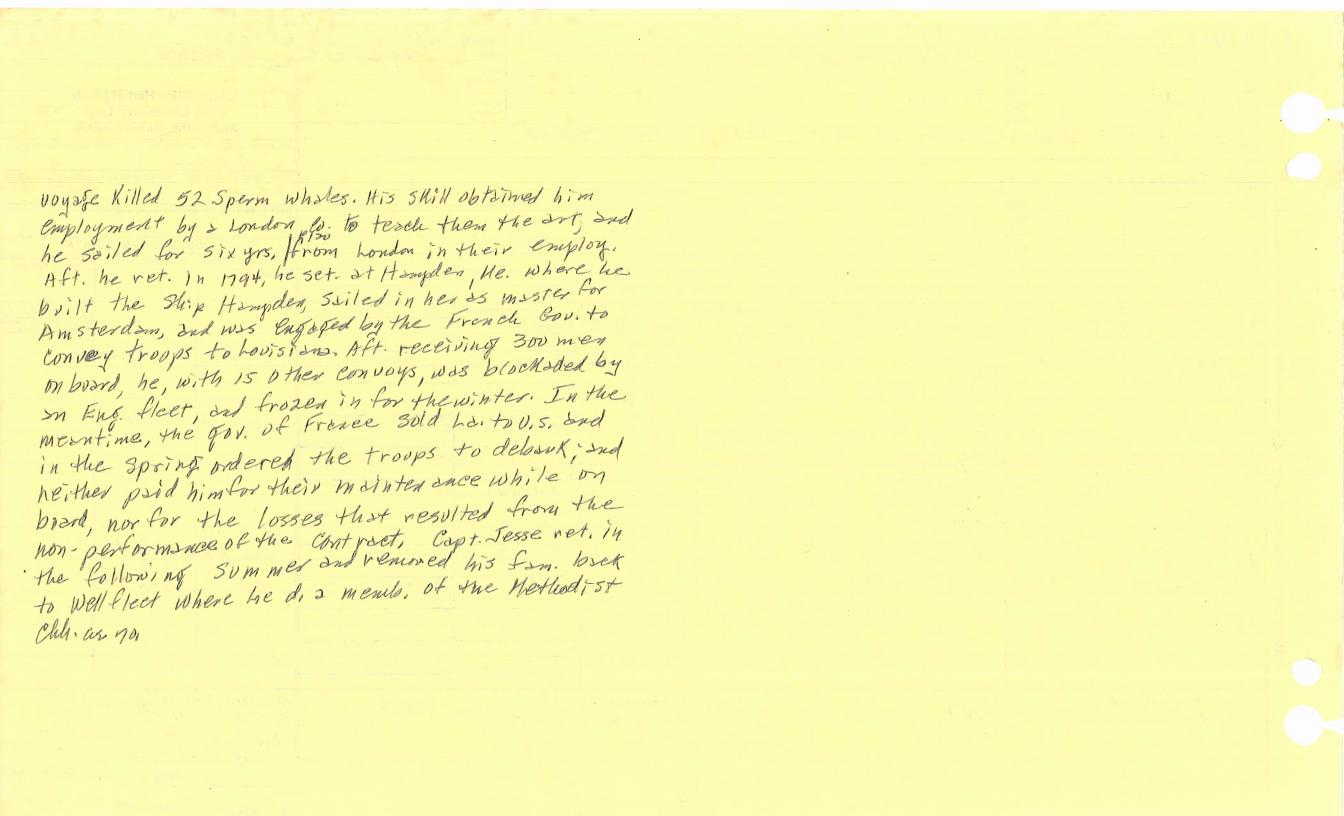 voyage Killed 52 Sperm whales. His skill obtained him
employment by a London Co. to teach them the art, and
he sailed for six yrs. from London in their employ.
Aft. he ret. In 1794, he set. at Hampden, Me. where he
built the Ship Hampden, sailed in her as master for
Amsterdam, and was engaged by the French Gov. to
convey troops to Louisiana. Aft. receiving 300 men
on board, he, with 15 other convoys, was blockaded by
an Eng. fleet, and frozen in for the winter. In the
meantime, the gov. of France sold La. to U.S. and
in the Spring ordered the troops to debark; and
neither paid him for their maintenance while on
board, nor for the losses that resulted from the
non-performance of the contract. Capt. Jesse ret. in
the following Summer and removed his fam. back
to Wellfleet where he d. a memb. of the Methodist
Chh. ae 70